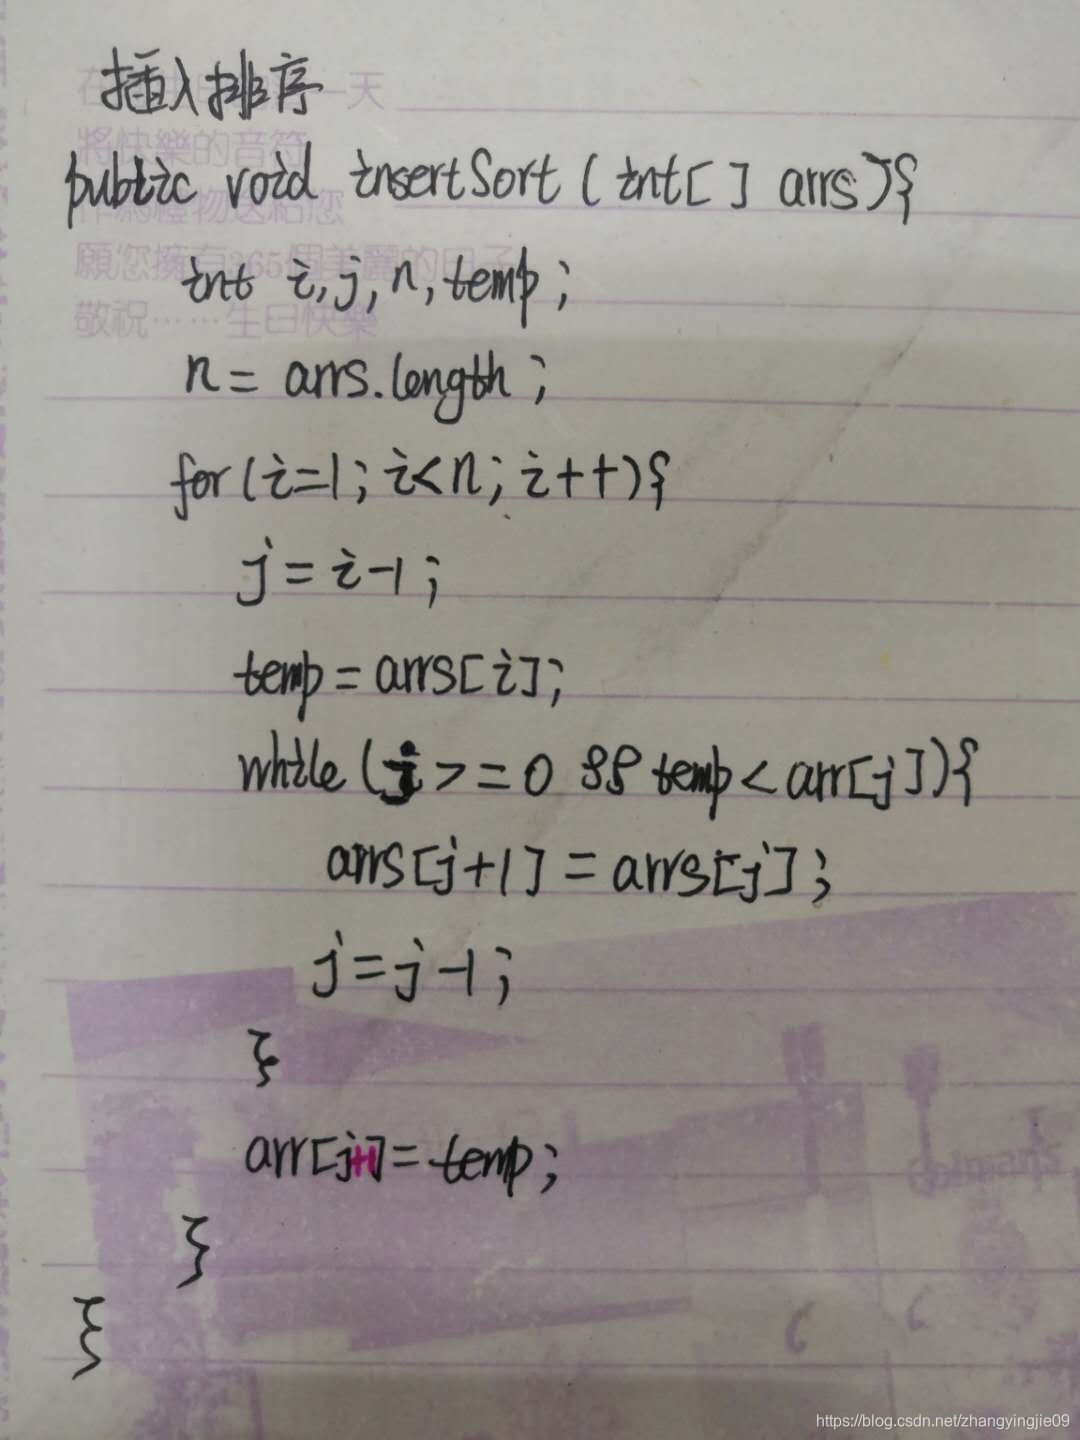 插入排序
public void insertSort (int[] arrs){
int i,j,n,temp;
n = arrs.length;
for(i=1; i<n; i++){
j = i-1;
temp = arrs[i];
while (j >= 0 && temp < arr[j]){
arrs[j+1] = arrs[j];
j = j-1;
}
arr[j+1] = temp;
}
}
將快樂的音符
願您擁有365個美麗的日子
敬祝……生日快樂
https://blog.csdn.net/zhangyingjie09